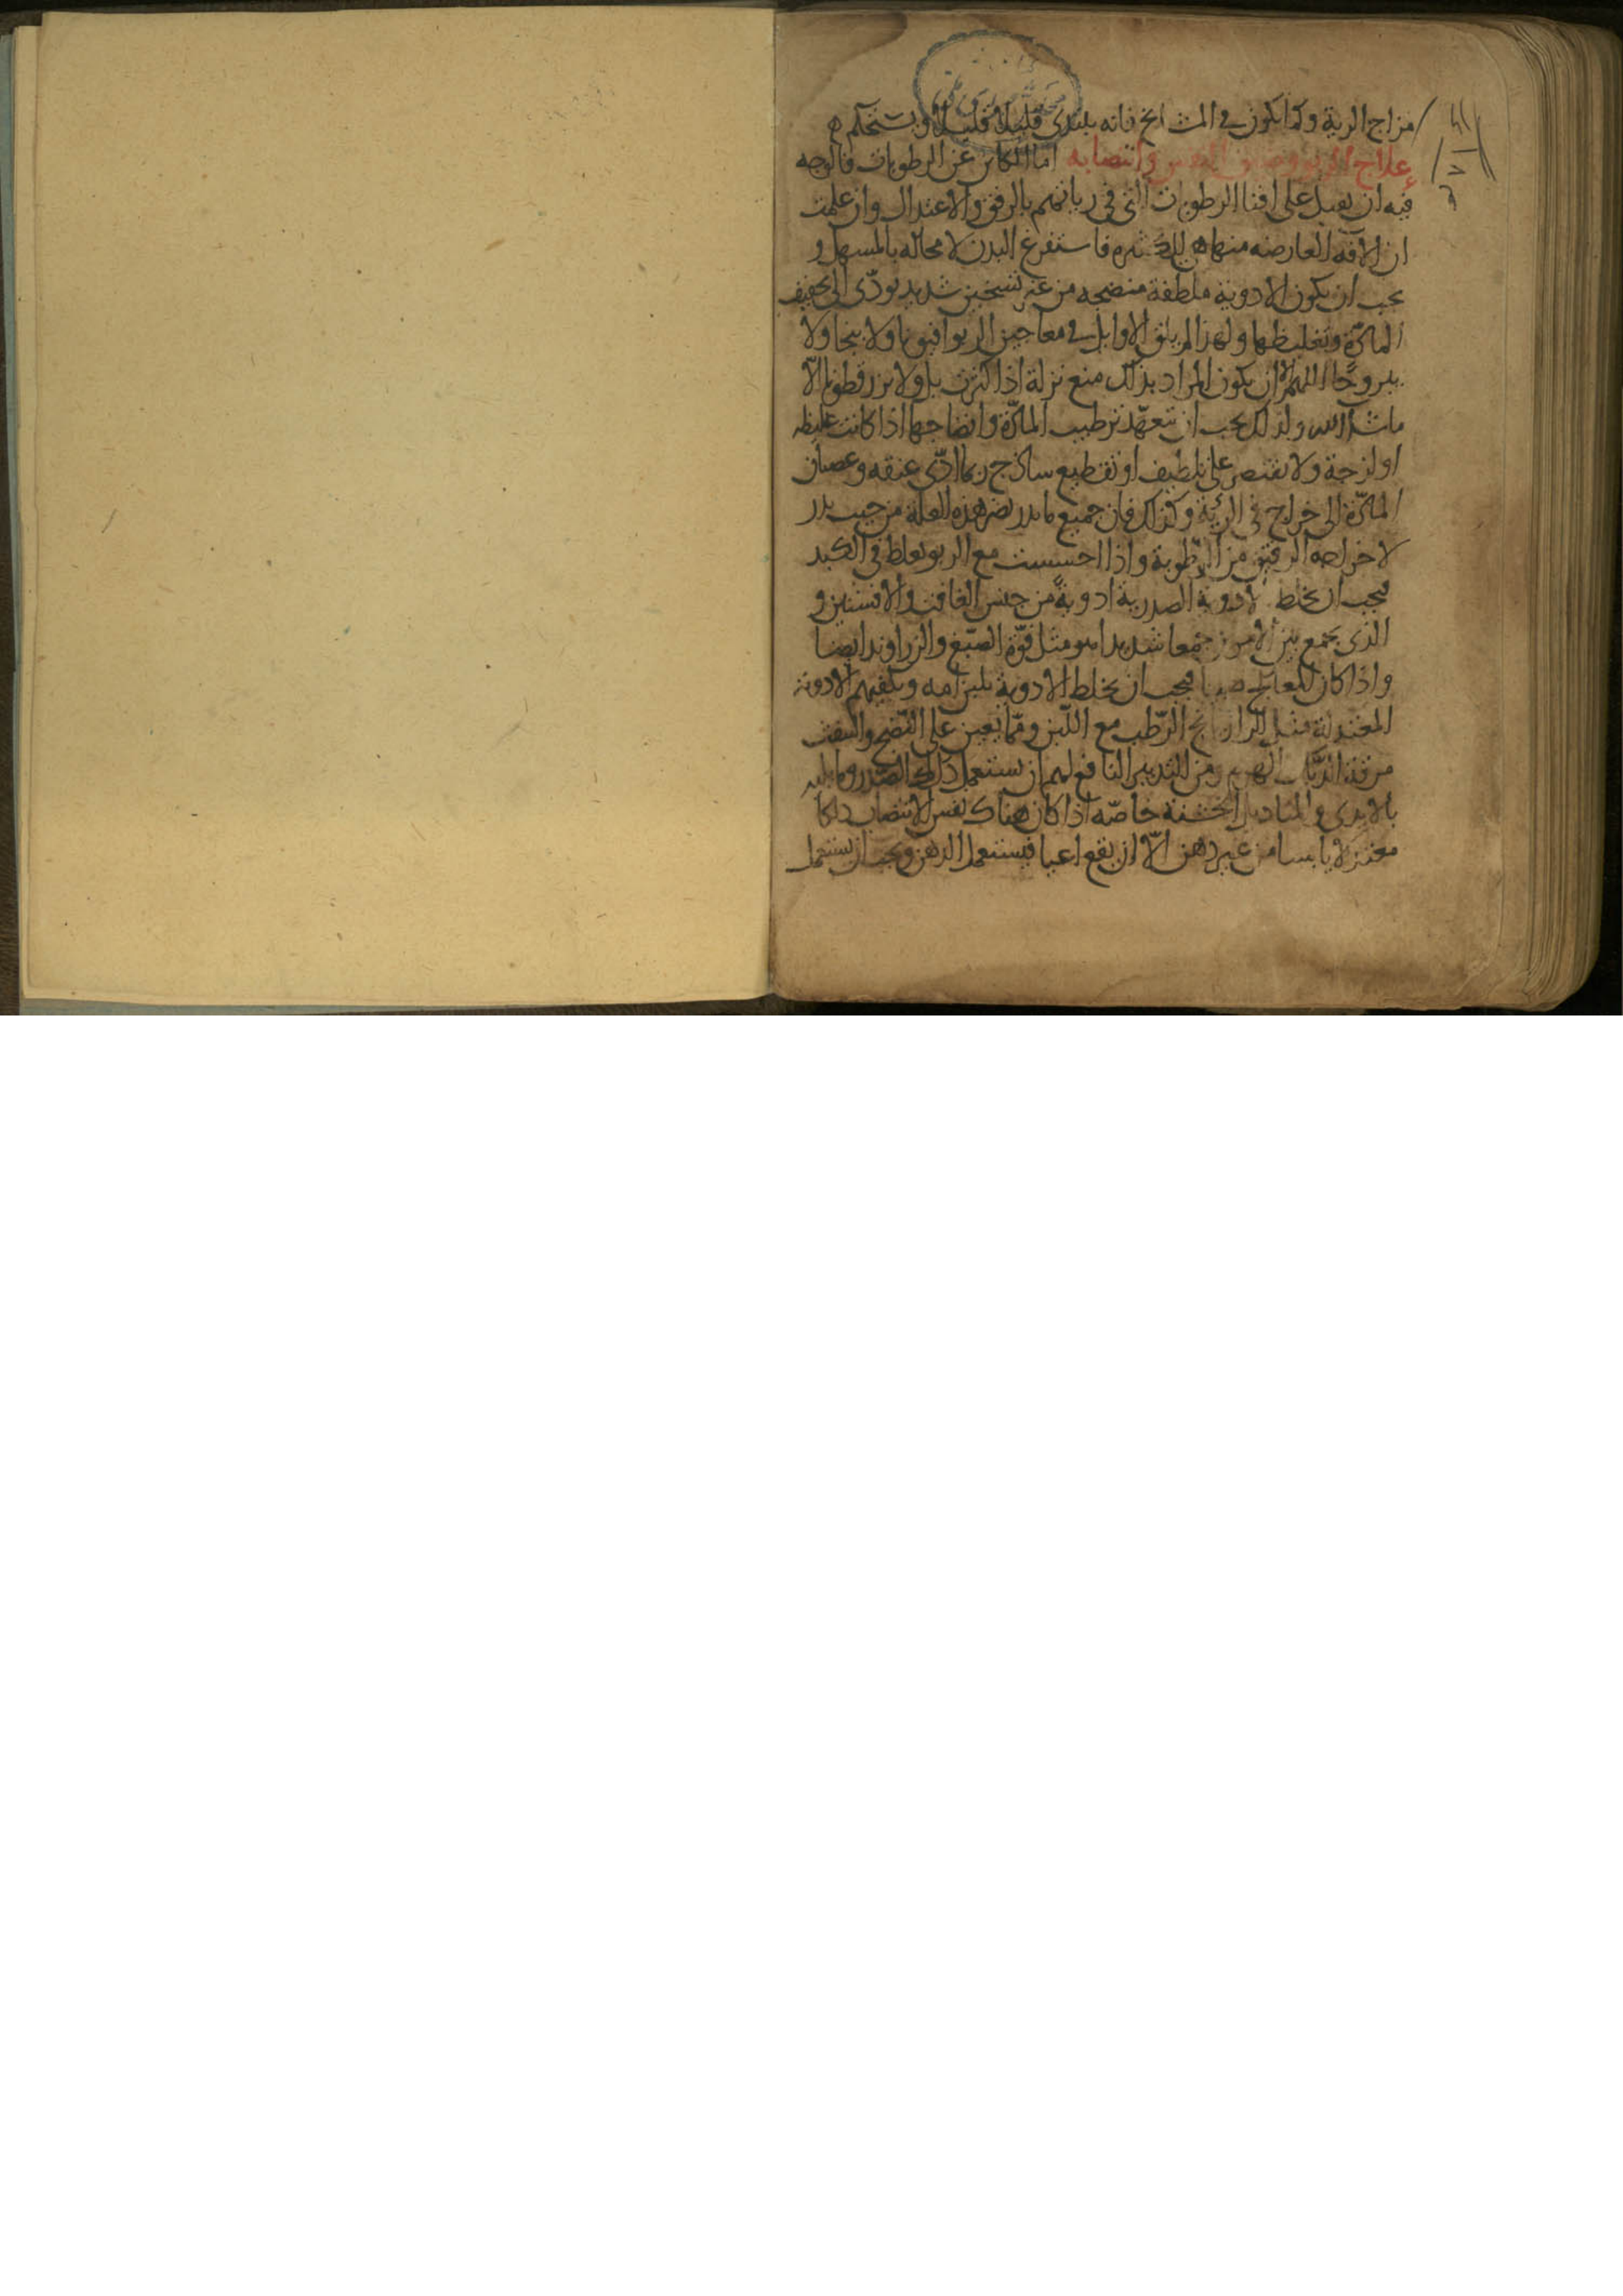 مزاج الرية وكما يكون في المشايخ فانه يبتدى قليلا قليلا ويستحكم
علاج الربو وضيق النفس وانتصابه اما الكاين عن الرطوبات فالوجه
فيه ان يقبل على افنا الرطوبات التي في رياتهم بالرفق والاعتدال وان علمت
ان الافه العارضه منها هي للكثره فاستفرغ البدن لا محاله بالمسهل و
يجب ان يكون الادوية ملطفة منضجه من غير تسخين شديد يودّى الى تجفيف
المادّة وتغليظها ولهذا لم يلق الاوايل في معاجين الربو افيونا ولا بنجا ولا
يبروحًا اللهم الا ان يكون المراد بذلك منع نزلة اذا كثرت بل ولا بزرقطونا الّا
ماشا الله ولذلك يجب ان تتعهّد ترطيب المادّة وانضاجها اذا كانت غليظه
او لزجة ولا تقتصر على تلطيف او تقطيع ساذج ربما ادّى عنفه وعصيان
المادّة الى خراج في الرئة وكذلك فان جميع ما يدر يضر هذه العلة من حيث يدر
لاخراجه الرقيق من الرطوبة واذا احسست مع الربو بغلظ في الكبد
فيجب ان يخلط بالادوية الصدرية ادويةً من جنس الغافت والافسنتين و
الذى يجمع بين الامرين جمعا شديدا هو مثل فوّة الصّبغ والزراوند ايضا
واذا كان المعالج صبيا فيجب ان يخلط الادوية بلبن امه ويكفيهم الادوية
المعتدلة مثل الرازيانج الرّطب مع اللّبن وممّا يعين على النّضج والنفث
مرقة الدّيك الهرم ومن التدبير النافع لهم ان يستعمل دلك الصّدر وما يليه
بالايدى والمناديل الخشنة خاصّه اذا كان هناك نفس الانتصاب دلكا
معتدلا يابسا من غير دهن الّا ان يقع اعيا فيستعمل الدهن ويجب ان يستعمل